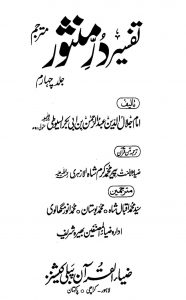 تفسیر درمنثور مترجم
جلد چہارم
تالیف
امام جلال الدین عبدالرحمٰن بن ابی بکر السیوطی
ترجمہ متن قرآن
ضیاء الامت پیر محمد کرم شاہ الازہری
مترجمین
سید محمد اقبال شاہ ○ محمد بوستان ○ محمد انور مگھالوی
ادارہ ضیاء المصنفین بھیرہ شریف
ضیاء القرآن پبلی کیشنز
لاہور - کراچی ○ پاکستان